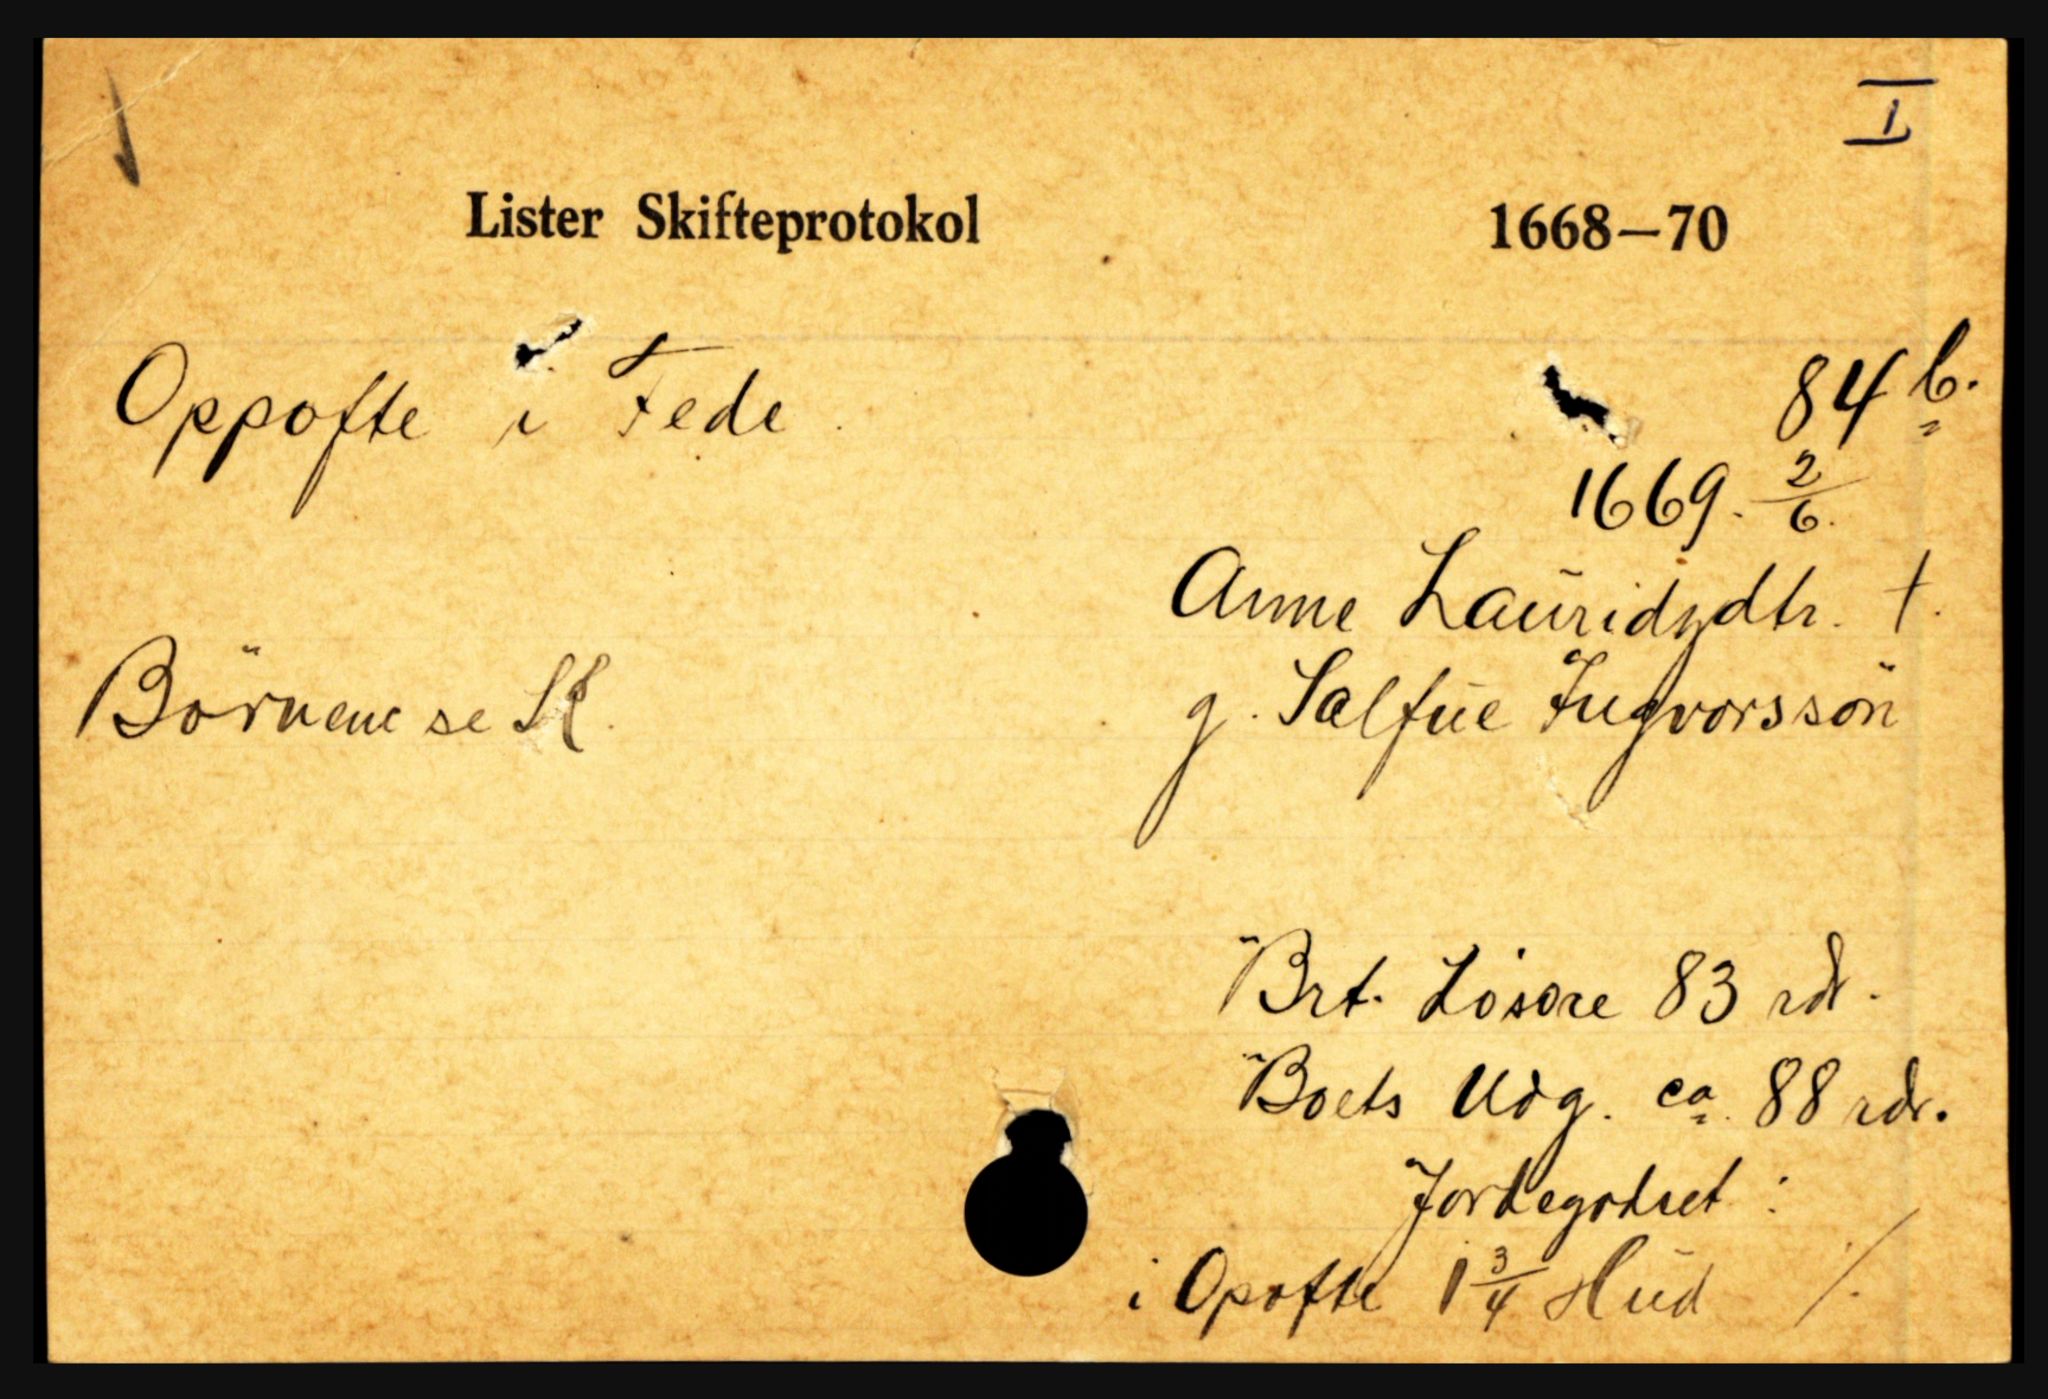 I
Lister Skifteprotokol 1668—70
Oppofte i Fede. 84 b.
1669. 2/6.
Anne Lauridsdtr. †.
Börnene se SK. g. Salfue Ingvorssön
Brt. Lösöre 83 rdr.
Boets Udg. ca. 88 rdr.
Jordegodset :
i Opofte 1 3/4 Hud ./.